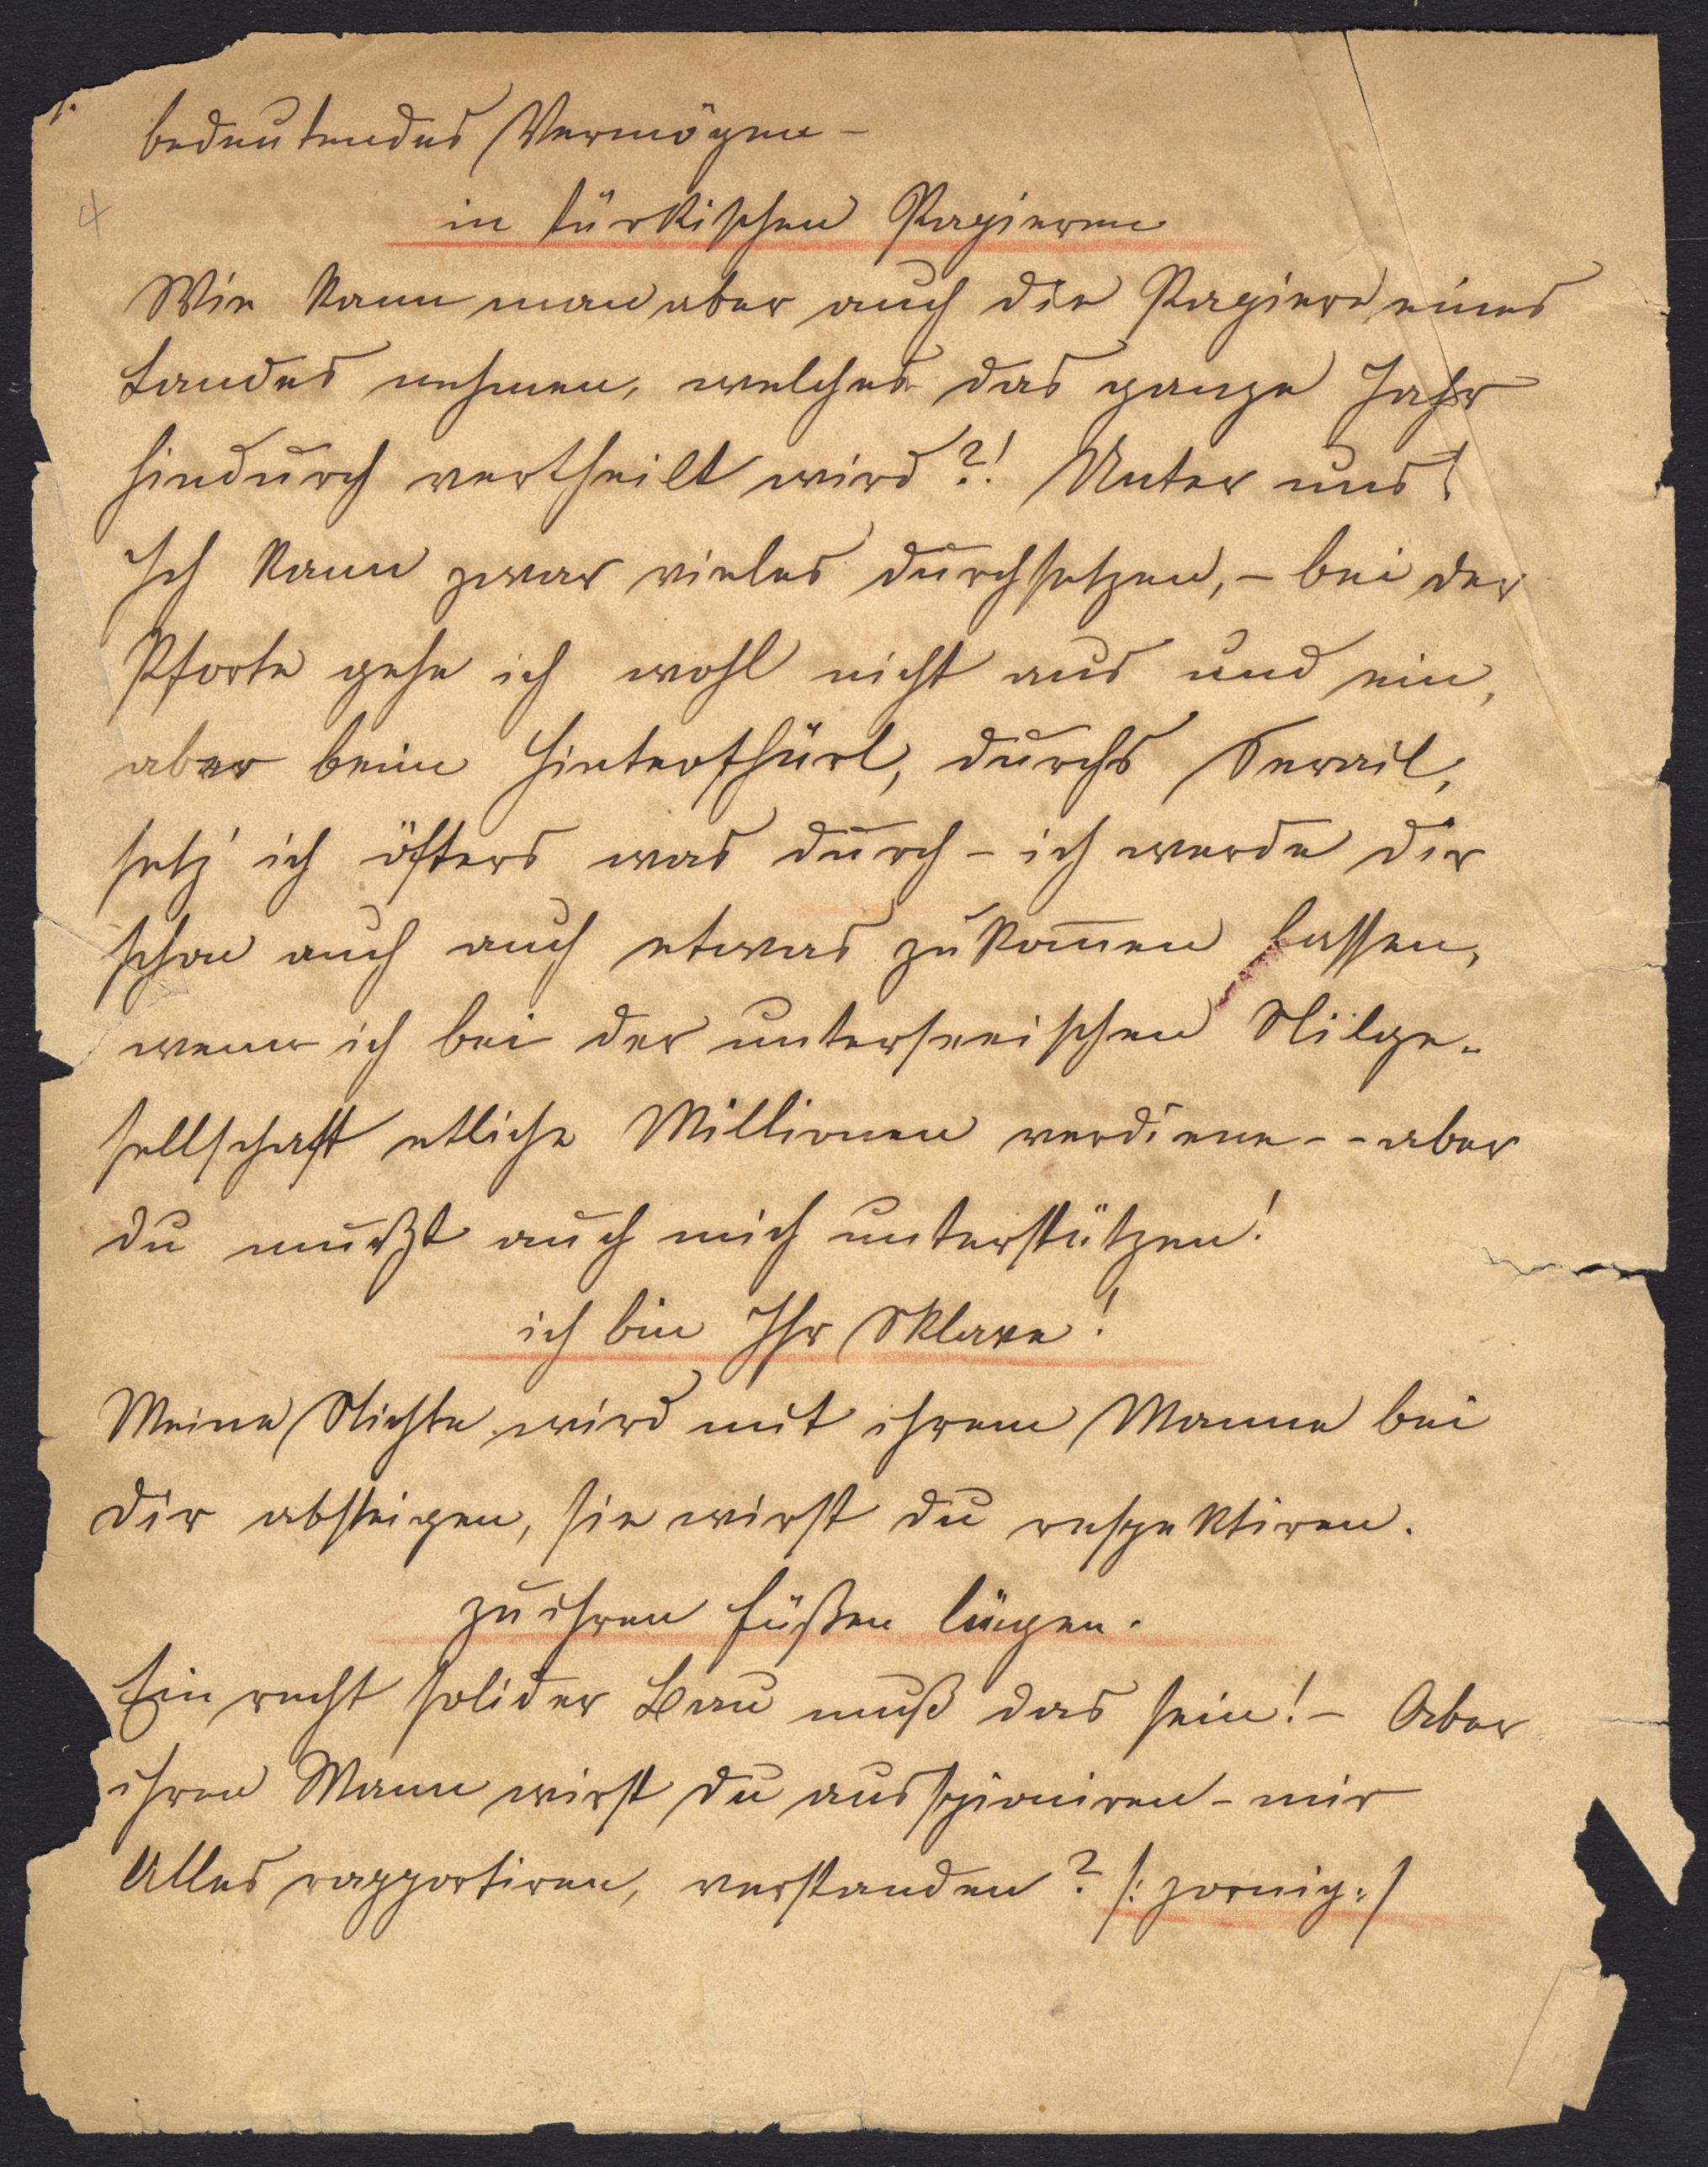 4
bedeutendes Vermögen –
in türkischen Papieren
Wie kann man aber auch die Papiere eines
Landes nehmen, welches das ganze Jahr
hindurch vertheilt wird?! Unter uns!
Ich kann zwar vieles durchsetzen, – bei der
Pforte gehe ich wohl nicht aus und ein,
aber beim Hinterthürl, durchs Serail,
setz' ich öfters was durch – ich werde dir
schon auch auch etwas zukom̅en lassen,
wenn ich bei der unterseeischen Nilge-
sellschaft etliche Millionen verdiene - - aber
du mußt auch mich unterstützen!
ich bin Ihr Sklave!
Meine Nichte wird mit ihrem Manne bei
dir absteigen, sie wirst du respektiren.
zu ihren Füßen liegen.
Ein recht solider Bau muß das sein! – Aber
ihren Mann wirst du ausspioniren – mir
Alles rapportiren, verstanden? /: zornig :/